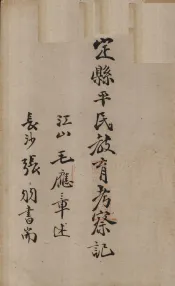 定縣平民教育考察記
江山 毛應章述
長沙張 書耑